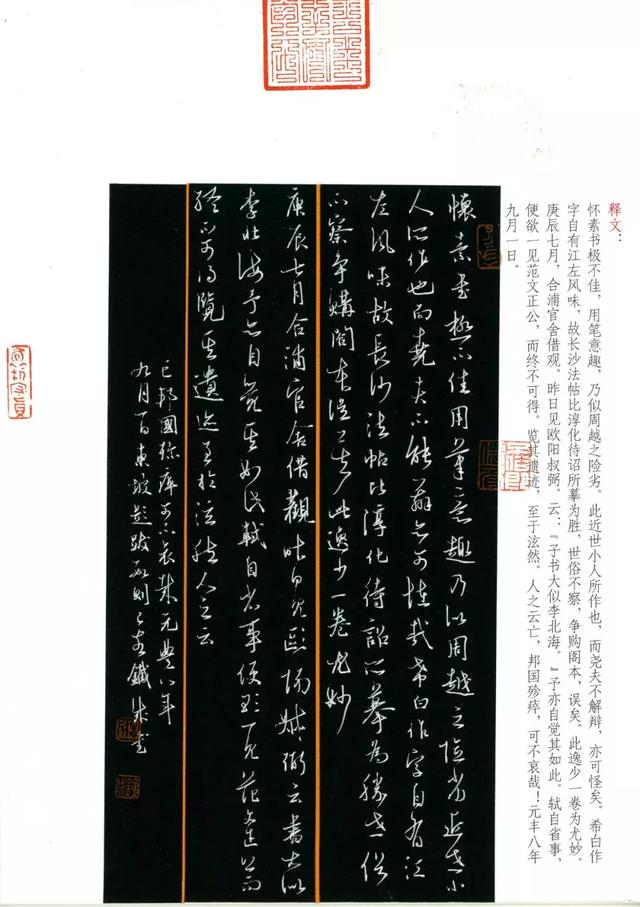 释文：
怀素书极不佳，用笔意趣，乃似周越之险劣。此近世小人所作也，而尧夫不解辩，亦可怪矣。希白作
字自有江左风味，故长沙法帖比淳化待诏所摹为胜，世俗不察，争购阁本，误矣。此逸少一卷为尤妙。
庚辰七月，合浦官舍借观。昨日见欧阳叔弼。云：『子书大似李北海。』予亦自觉其如此。轼自省事，
便欲一见范文正公，而终不可得。览其遗迹，至于泫然。人之云亡，邦国殄瘁，可不哀哉！元丰八年
九月一日。
懷素書極不佳用筆意趣乃似周越之險劣近世小
人所作也而堯夫不能辯亦可怪哉希白作字自有江
左風味故長沙法帖比淳化待詔所摹為勝世俗
不察爭購閣本誤矣此逸少一卷尤妙
庚辰七月合浦官舍借觀昨日見歐陽叔弼云書大似
李北海予亦自覺其如此軾自省事便欲一見范文正公而
終不可得覽其遺迹至於泫然人之云
亡邦國殄瘁可不哀哉元豊八年
九月一日東坡題跋數則